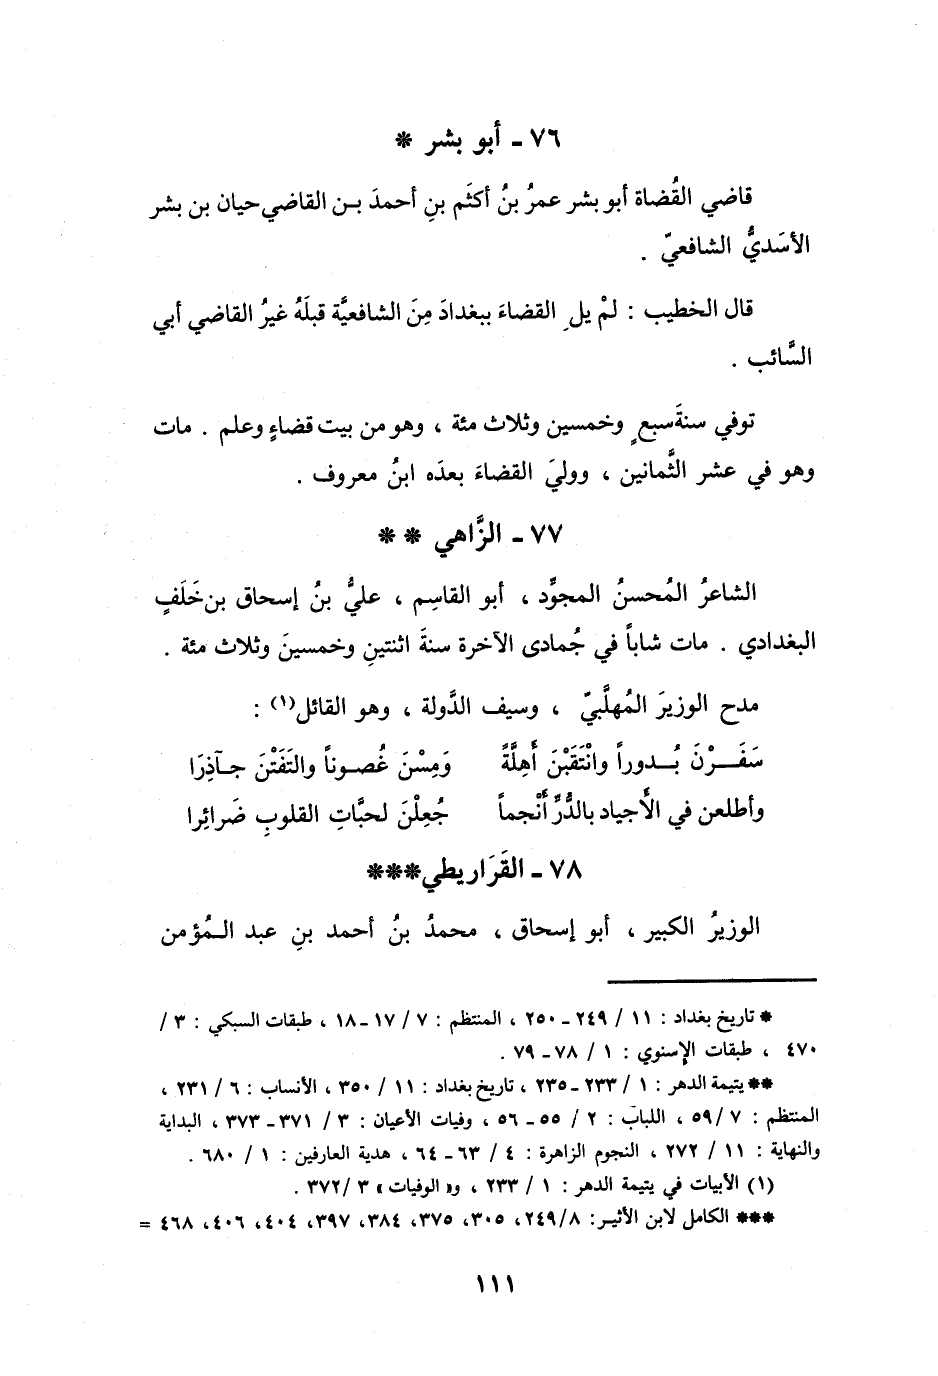 ٧٦ - أبو بشر *
قاضي القُضاة أبو بشر عمرُ بنُ أكثَم بنِ أحمدَ بن القاضي حيان بن بشر
الأسَديُّ الشافعيّ .
قال الخطيب : لمْ يلِ القضاءَ ببغدادَ مِنَ الشافعيَّة قبلَهُ غيرُ القاضي أبي
السَّائب .
توفي سنةَ سبعٍ وخمسين وثلاث مئة ، وهو من بيت قضاءٍ وعلم . مات
وهو في عشر الثَّمانين ، ووليَ القضاءَ بعدَه ابنُ معروف .
٧٧ - الزَّاهي **
الشاعرُ المُحسنُ المجوِّد ، أبو القاسِم ، عليُّ بنُ إسحاق بن خَلَفٍ
البغدادي . مات شاباً في جُمادى الآخرة سنةَ اثنتينِ وخمسينَ وثلاث مئة .
مدح الوزيرَ المُهلَّبيّ ، وسيف الدَّولة ، وهو القائل(١) :
سَفَرْنَ بُدوراً وانْتَقَبْنَ أَهِلَّةً وَمِسْنَ غُصوناً والتَفَتْنَ جآذِرَا
وأطلعن في الأَجياد بالدُّرِّ أَنْجماً جُعِلْنَ لحبَّاتِ القلوبِ ضَرائِرا
٧٨ - القَرَاريطي ***
الوزيرُ الكبير ، أبو إسحاق ، محمدُ بنُ أحمد بنِ عبد المُؤمن
* تاريخ بغداد : ١١ / ٢٤٩ - ٢٥٠ ، المنتظم : ٧ / ١٧ - ١٨ ، طبقات السبكي : ٣ /
٤٧٠ ، طبقات الإسنوي : ١ / ٧٨ - ٧٩ .
** يتيمة الدهر : ١ / ٢٣٣ - ٢٣٥ ، تاريخ بغداد : ١١ / ٣٥٠ ، الأنساب : ٦ / ٢٣١ ،
المنتظم : ٧ / ٥٩ ، اللباب : ٢ / ٥٥ - ٥٦ ، وفيات الأعيان : ٣ / ٣٧١ - ٣٧٣ ، البداية
والنهاية : ١١ / ٢٧٢ ، النجوم الزاهرة : ٤ / ٦٣ - ٦٤ ، هدية العارفين : ١ / ٦٨٠ .
(١) الأبيات في يتيمة الدهر : ١ / ٢٣٣ ، و« الوفيات » ٣ / ٣٧٢ .
*** الكامل لابن الأثير : ٨ / ٢٤٩ ، ٣٠٥ ، ٣٧٥ ، ٣٨٤ ، ٣٩٧ ، ٤٠٤ ، ٤٠٦ ، ٤٦٨ =
١١١